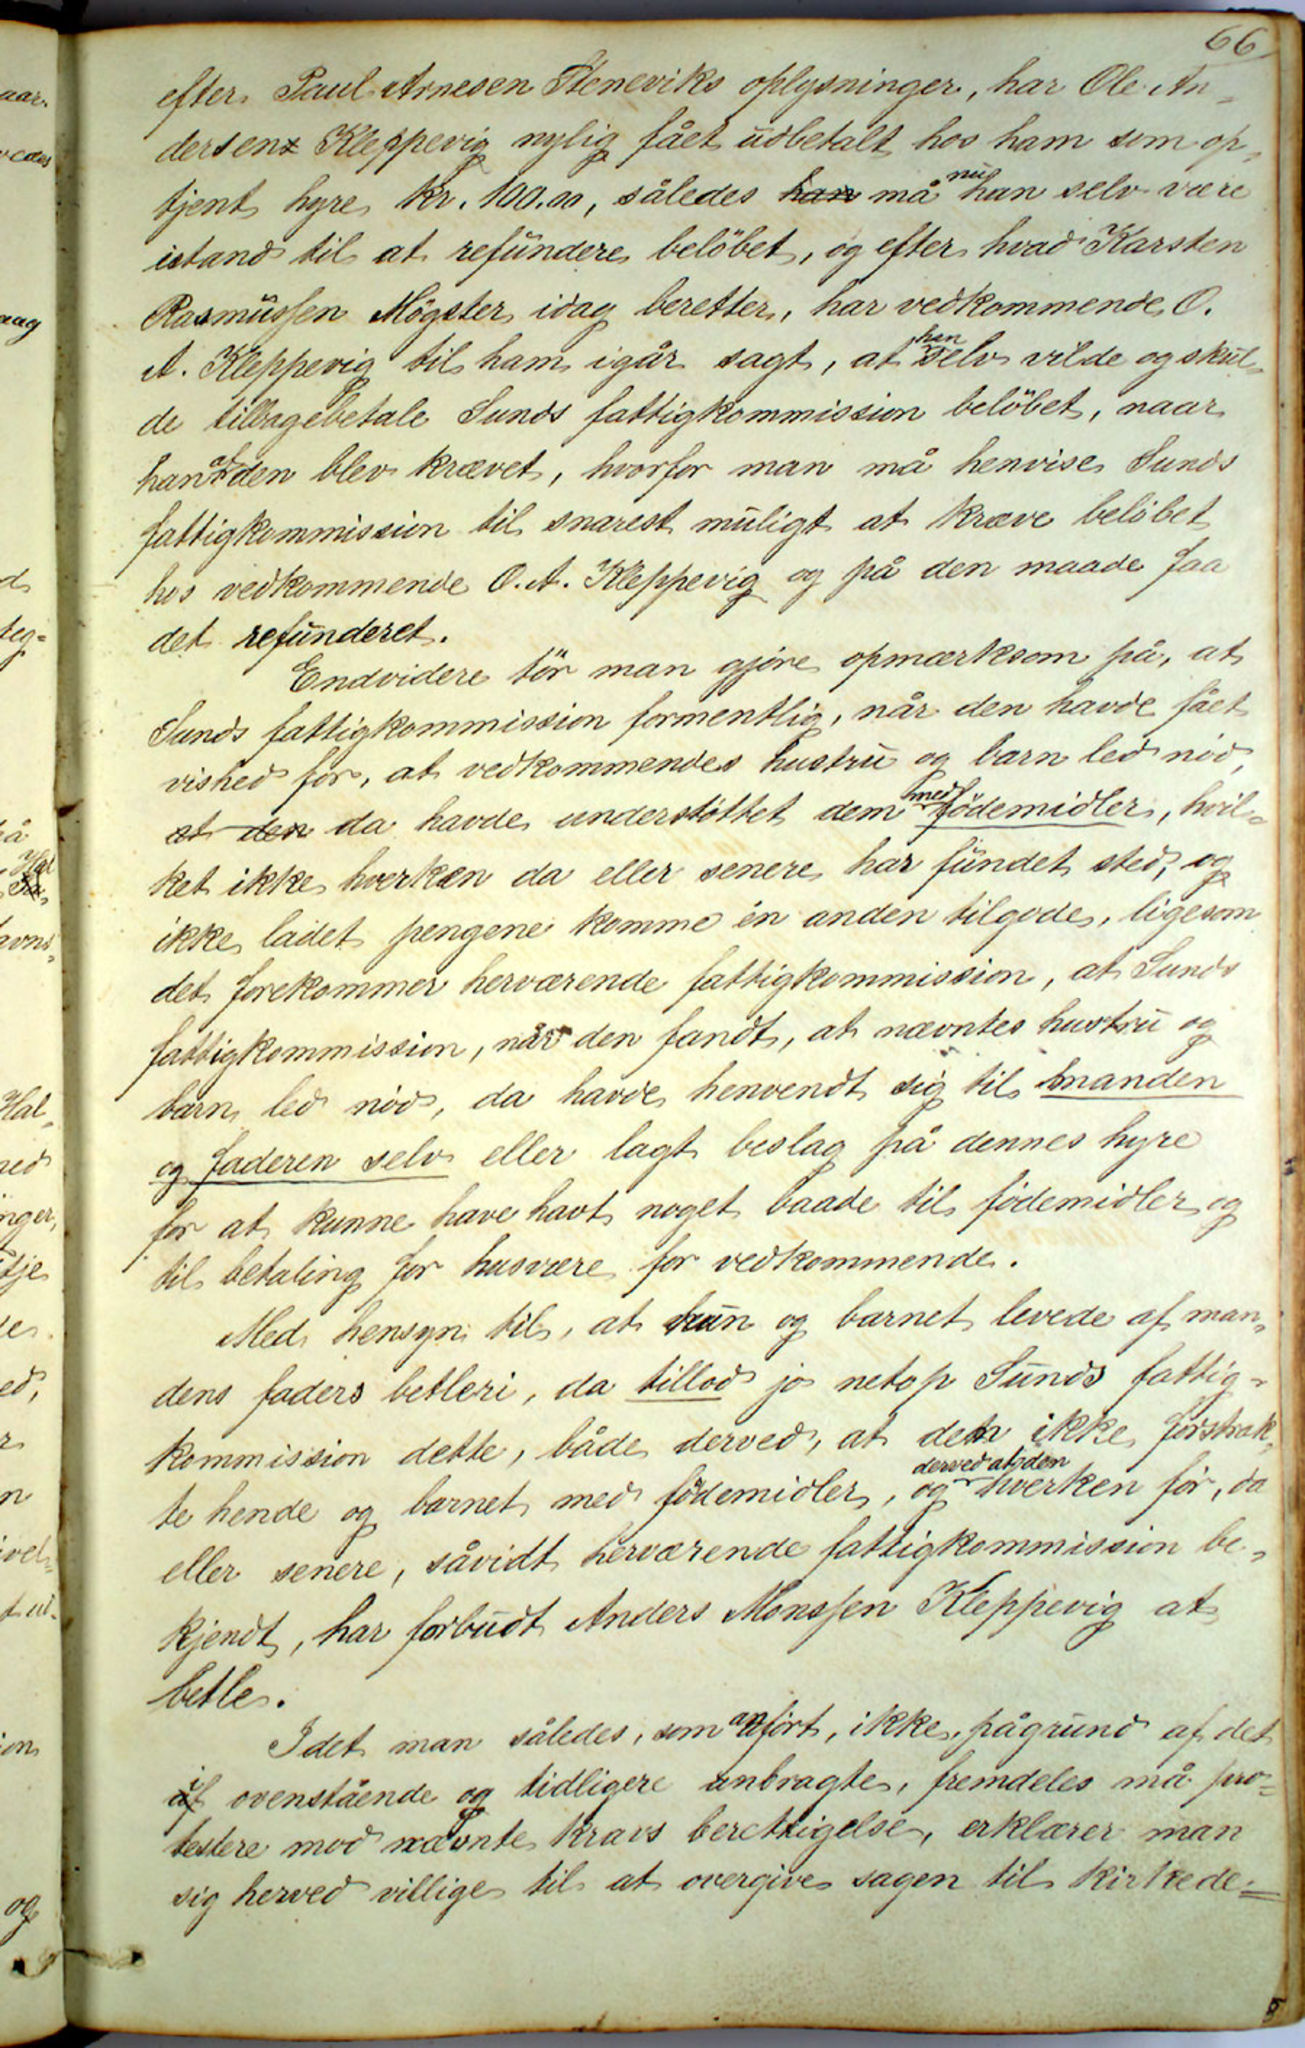 66
efter Paul Arnesen Steneviks oplysninger, har Ole An-
dersen Kleppevig nylig fået udbetalt hos ham som op-
tjent hyre kr. 100.00, således han må nu han selv være
istand til at refundere belöbet, og efter hvad Karsten
Rasmussen Mögster idag beretter, har vedkommende O.
A. Kleppevig til ham igår sagt, at han selv vilde og skul-
de tilbagebetale Sunds fattigkommission belöbet, naar
han af den blev krævet, hvorfor man må henvise Sunds
fattigkommission til snarest muligt at kræve belöbet
hos vedkommende O. A. Kleppevig og på den maade faa
det refunderet.
Endvidere tör man gjöre opmærksom på, at
Sunds fattigkommission formentlig, når den havde fået
vished for, at vedkommendes hustru og barn led nöd,
at den da havde understöttet dem med födemidler, hvil-
ket ikke hverken da eller senere har fundet sted, og
ikke ladet pengene komme én anden tilgode, ligesom
det forekommer herværende fattigkommission, at Sunds
fattigkommission, når den fandt, at nævntes hustru og
barn led nöd, da havde henvendt sig til manden
og faderen selv eller lagt beslag på dennes hyre
for at kunne have havt noget baade til födemidler og
til betaling for husvære for vedkommende.
Med hensyn til, at hun og barnet levede af man-
dens faders betleri, da tillod jo netop Sunds fattig-
kommission dette, både derved, at den ikke forstrak-
te hende og barnet med födemidler, og derved at den hverken för, da
eller senere, såvidt herværende fattigkommission be-
kjendt, har forbudt Anders Monssen Kleppevig at
betle.
Idet man således, som anfört, ikke på grund af det
i ovenstående og tidligere anbragte, fremdeles må pro-
testere mod nævnte kravs berettigelse, erklærer man
sig herved villige til at overgive sagen til kirkede-